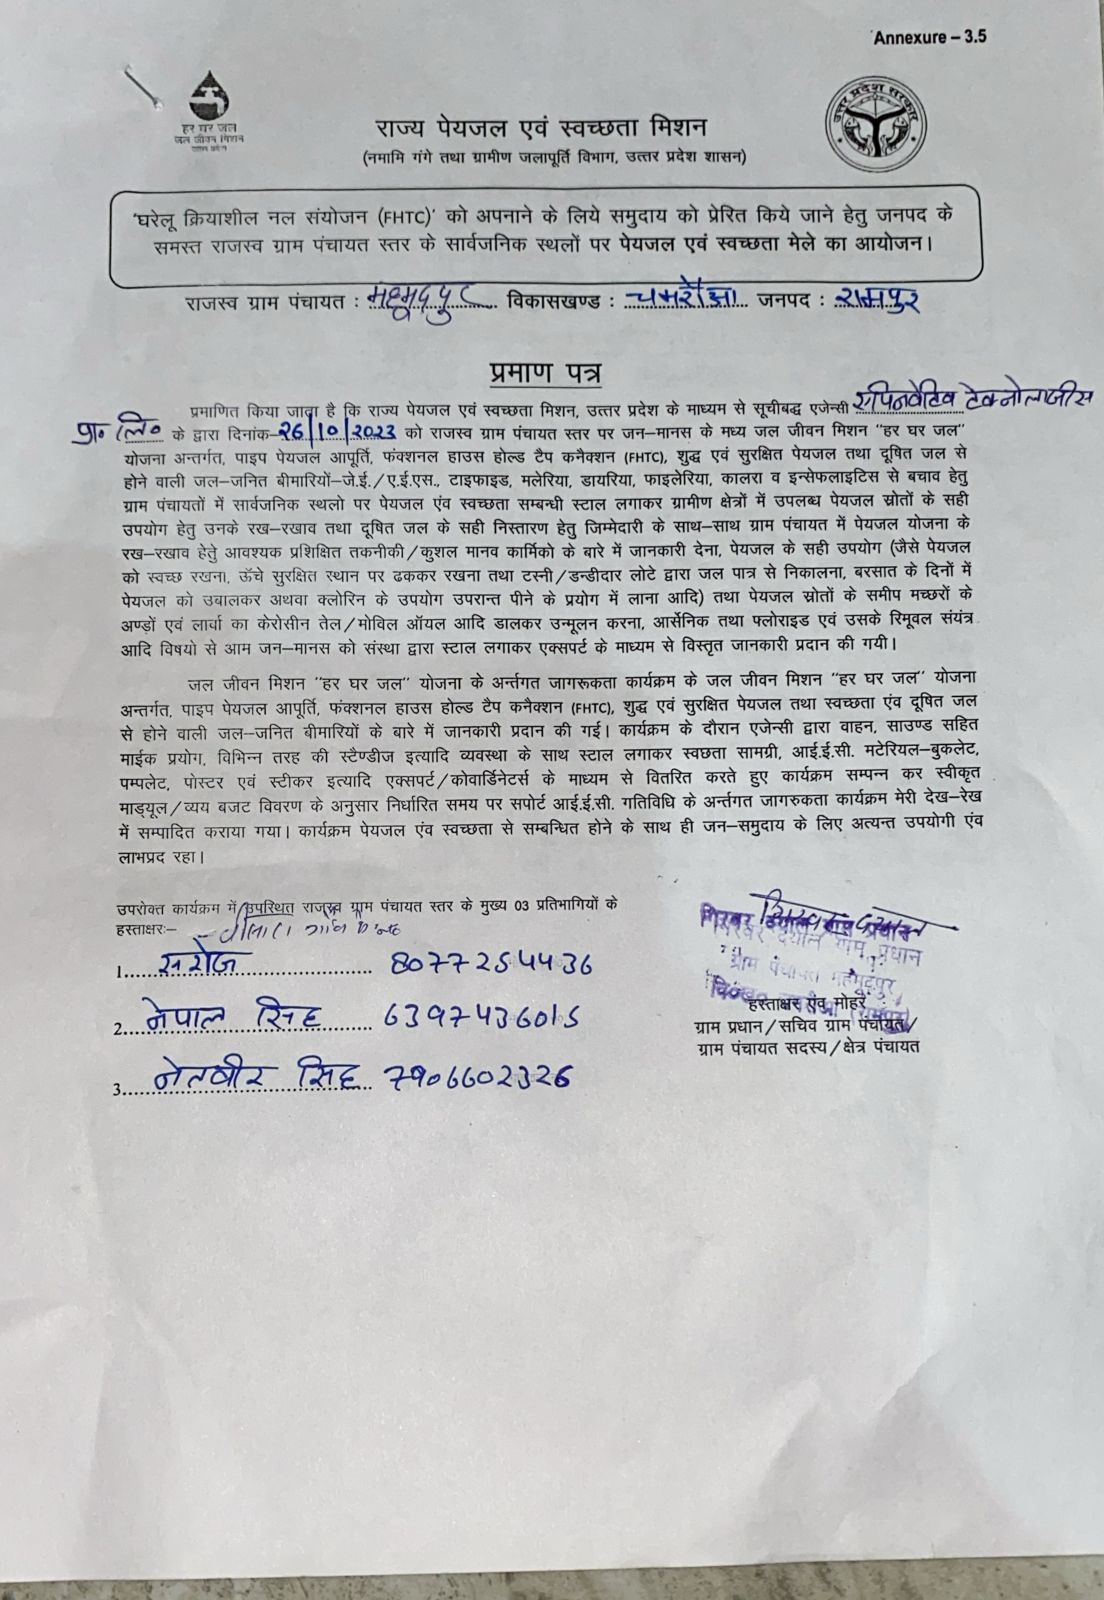 Annexure – 3.5
हर घर जल
जल जीवन मिशन
उत्तर प्रदेश सरकार
राज्य पेयजल एवं स्वच्छता मिशन
(नमामि गंगे तथा ग्रामीण जलापूर्ति विभाग, उत्तर प्रदेश शासन)
'घरेलू क्रियाशील नल संयोजन (FHTC)' को अपनाने के लिये समुदाय को प्रेरित किये जाने हेतु जनपद के
समस्त राजस्व ग्राम पंचायत स्तर के सार्वजनिक स्थलों पर पेयजल एवं स्वच्छता मेले का आयोजन।
राजस्व ग्राम पंचायत : महमूदपुर विकासखण्ड : चमरौआ जनपद : रामपुर
प्रमाण पत्र
प्रमाणित किया जाता है कि राज्य पेयजल एवं स्वच्छता मिशन, उत्तर प्रदेश के माध्यम से सूचीबद्ध एजेन्सी एपिनवेटिव टेक्नोलाजीस
प्रा० लि० के द्वारा दिनांक–26/10/2023 को राजस्व ग्राम पंचायत स्तर पर जन–मानस के मध्य जल जीवन मिशन "हर घर जल"
योजना अन्तर्गत, पाइप पेयजल आपूर्ति, फंक्शनल हाउस होल्ड टैप कनैक्शन (FHTC), शुद्ध एवं सुरक्षित पेयजल तथा दूषित जल से
होने वाली जल–जनित बीमारियों–जे.ई./ए.ई.एस., टाइफाइड, मलेरिया, डायरिया, फाइलेरिया, कालरा व इन्सेफलाइटिस से बचाव हेतु
ग्राम पंचायतों में सार्वजनिक स्थलो पर पेयजल एंव स्वच्छता सम्बन्धी स्टाल लगाकर ग्रामीण क्षेत्रों में उपलब्ध पेयजल स्रोतों के सही
उपयोग हेतु उनके रख–रखाव तथा दूषित जल के सही निस्तारण हेतु जिम्मेदारी के साथ–साथ ग्राम पंचायत में पेयजल योजना के
रख–रखाव हेतु आवश्यक प्रशिक्षित तकनीकी/कुशल मानव कार्मिको के बारे में जानकारी देना, पेयजल के सही उपयोग (जैसे पेयजल
को स्वच्छ रखना, ऊँचे सुरक्षित स्थान पर ढककर रखना तथा टस्नी/डन्डीदार लोटे द्वारा जल पात्र से निकालना, बरसात के दिनों में
पेयजल को उबालकर अथवा क्लोरिन के उपयोग उपरान्त पीने के प्रयोग में लाना आदि) तथा पेयजल स्रोतों के समीप मच्छरों के
अण्ड़ों एवं लार्वा का केरोसीन तेल/मोविल ऑयल आदि डालकर उन्मूलन करना, आर्सेनिक तथा फ्लोराइड एवं उसके रिमूवल संयंत्र
आदि विषयो से आम जन–मानस को संस्था द्वारा स्टाल लगाकर एक्सपर्ट के माध्यम से विस्तृत जानकारी प्रदान की गयी।
जल जीवन मिशन "हर घर जल" योजना के अर्न्तगत जागरूकता कार्यक्रम के जल जीवन मिशन "हर घर जल" योजना
अन्तर्गत, पाइप पेयजल आपूर्ति, फंक्शनल हाउस होल्ड टैप कनैक्शन (FHTC), शुद्ध एवं सुरक्षित पेयजल तथा स्वच्छता एंव दूषित जल
से होने वाली जल–जनित बीमारियों के बारे में जानकारी प्रदान की गई। कार्यक्रम के दौरान एजेन्सी द्वारा वाहन, साउण्ड सहित
माईक प्रयोग, विभिन्न तरह की स्टैण्डीज इत्यादि व्यवस्था के साथ स्टाल लगाकर स्वछता सामग्री, आई.ई.सी. मटेरियल–बुकलेट,
पम्पलेट, पोस्टर एवं स्टीकर इत्यादि एक्सपर्ट/कोवार्डिनेटर्स के माध्यम से वितरित करते हुए कार्यक्रम सम्पन्न कर स्वीकृत
माड्यूल/व्यय बजट विवरण के अनुसार निर्धारित समय पर सपोर्ट आई.ई.सी. गतिविधि के अर्न्तगत जागरुकता कार्यक्रम मेरी देख–रेख
में सम्पादित कराया गया। कार्यक्रम पेयजल एंव स्वच्छता से सम्बन्धित होने के साथ ही जन–समुदाय के लिए अत्यन्त उपयोगी एंव
लाभप्रद रहा।
उपरोक्त कार्यक्रम में उपस्थित राजस्व ग्राम पंचायत स्तर के मुख्य 03 प्रतिभागियों के
हस्ताक्षरः–
1. सरोज 8077254436
2. नेपाल सिंह 6397436015
3. नेतवीर सिंह 7906602326
गिरवर दयाल ग्राम प्रधान
ग्राम पंचायत महमूदपुर
हस्ताक्षर एंव मोहरें
ग्राम प्रधान/सचिव ग्राम पंचायत/
ग्राम पंचायत सदस्य/क्षेत्र पंचायत